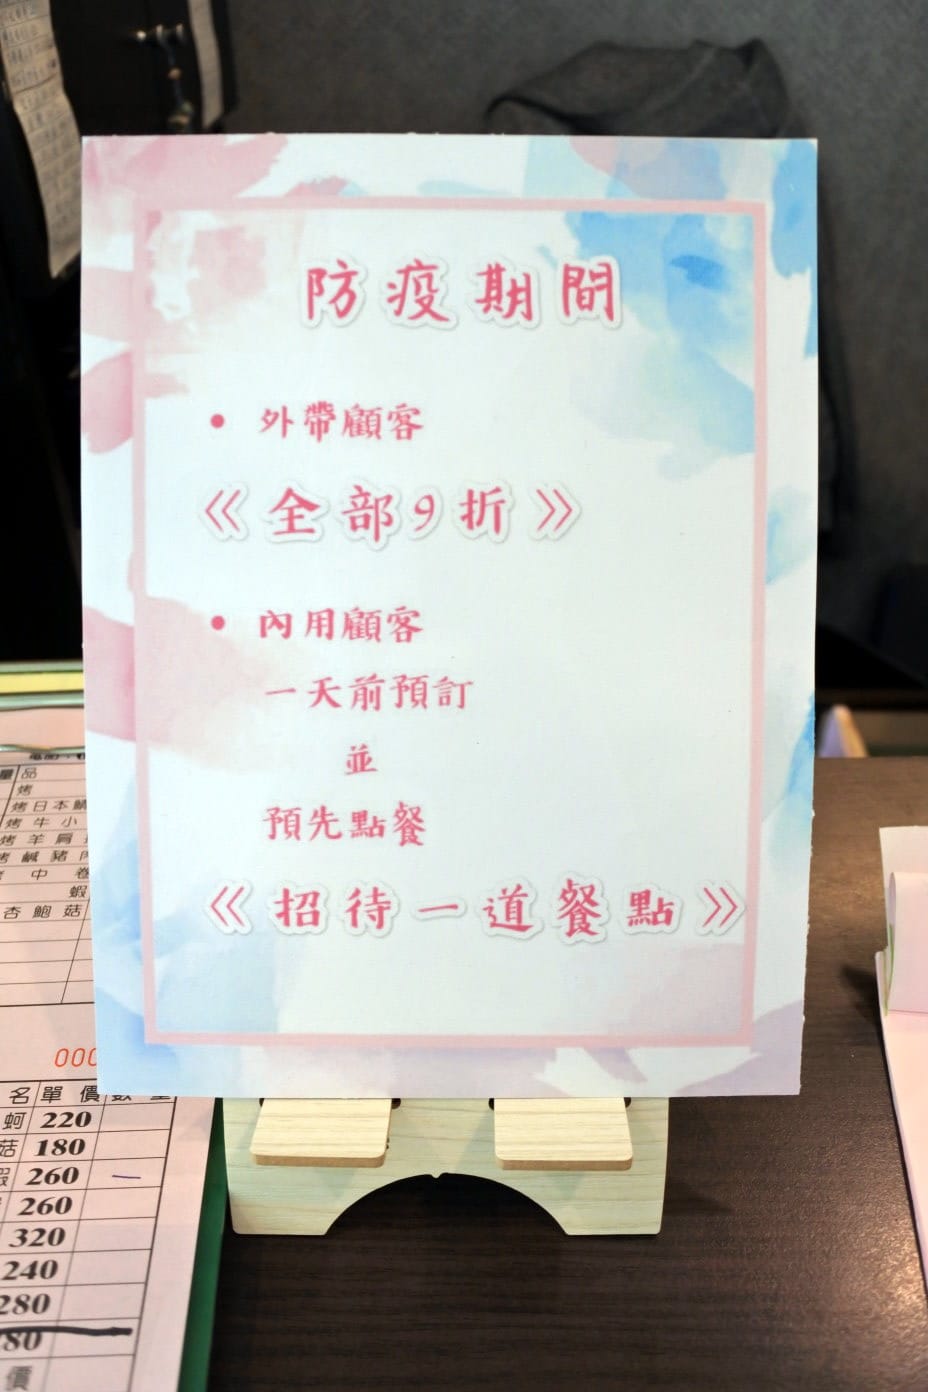 防疫期間
• 外帶顧客
《全部9折》
• 內用顧客
一天前預訂
並
預先點餐
《招待一道餐點》
品
烤
烤日本
烤牛小
烤羊肩
鹹豬
中卷
蝦
杏鮑菇
000
名 單價 數量
蚵 220
菇 180
蝦 260 一
260
320
240
280
80
價